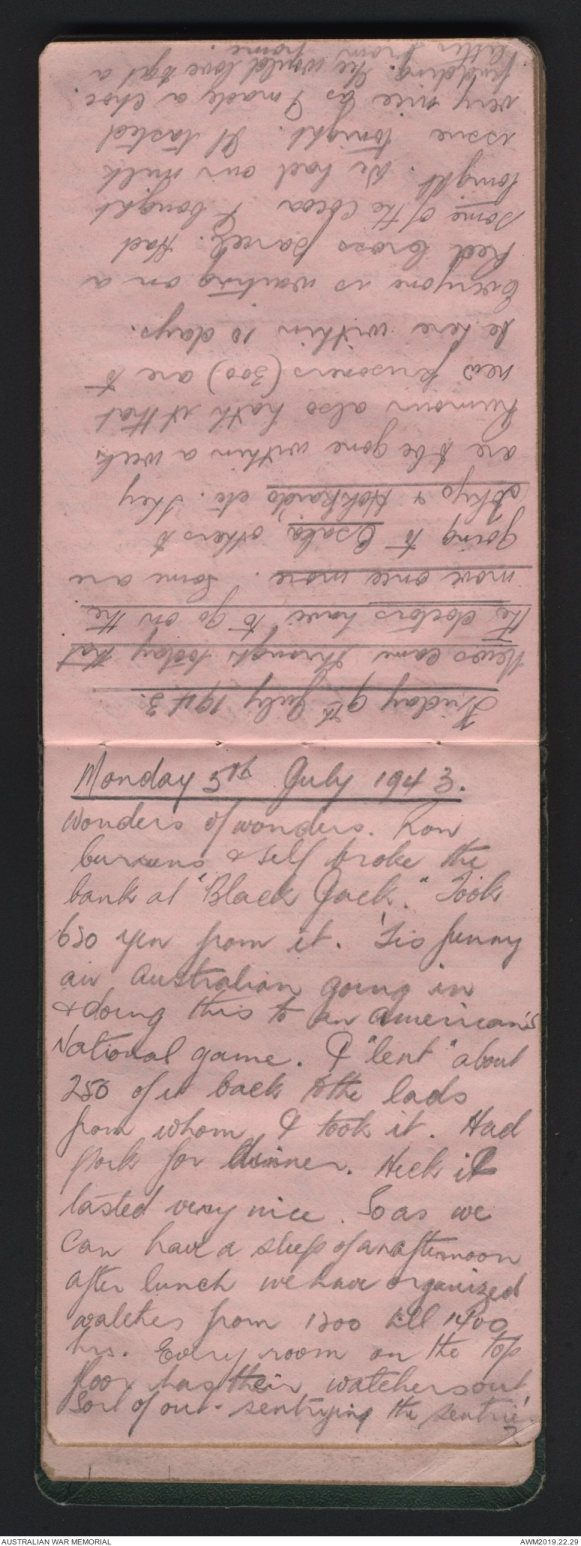 Monday 5th July 1943.
Wonders of wonders. Ron
burrens & self broke the
bank at "Black Jack." Took
650 yen from it. 'Tis funny
an Australian going in
& doing this to an American's
National game. I "lent" about
250 of it back to the lads
from whom I took it. Had
Pork for dinner. Heck it
tasted very nice. So as we
can have a sleep of an afternoon
after lunch we have organized
watches from 1200 till 1400
hrs. Every room on the top
floor has their watchers out
Sort of out-sentrying the sentries.
Friday 9th July 1943.
News came through today that
the doctors have to go on the
move once more. Some are
going to Osaka, others to
Tokyo & Hokkaido etc. They
are to be gone within a week
Rumour also hath it that
new prisoners (300) are to
be here within 10 days.
Everyone is waiting on a
Red Cross parcel. Had
some of the cocoa I bought
tonight. We had our milk
issue tonight. It tasted
very nice as I made a choc.
pudding. He would love to get a
letter from home.
AUSTRALIAN WAR MEMORIAL
AWM2019.22.29